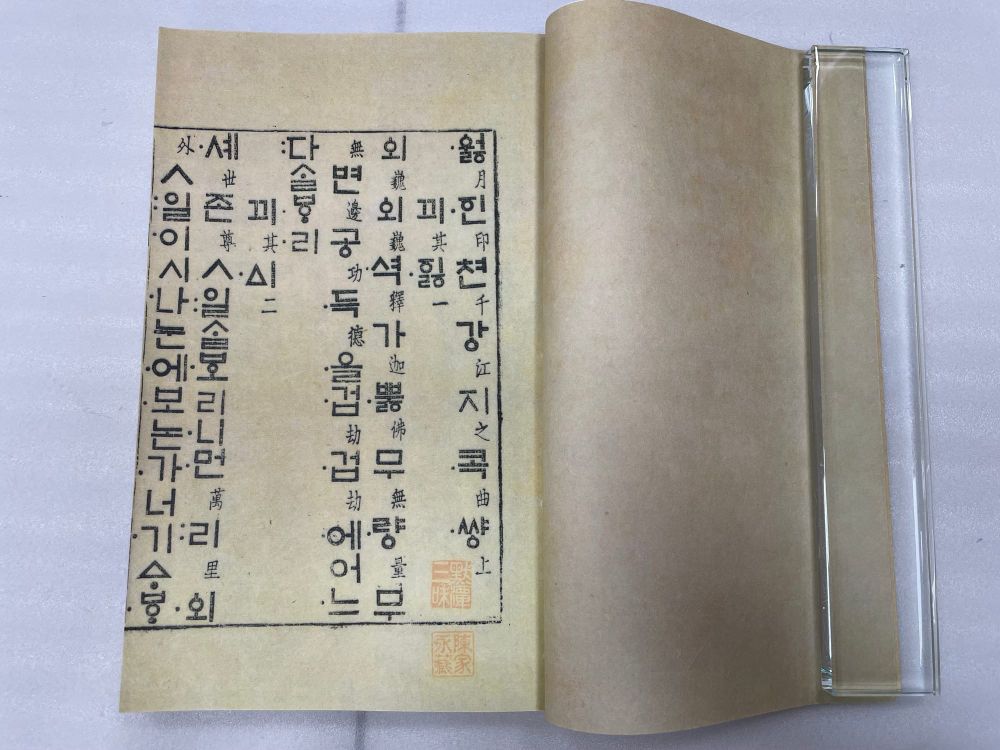 ·ᅌᅯᇙ月·ᅙᅵᆫ印쳔千강江지之·콕曲·썅上
끠其·ᅙᅵᇙ一
외巍외巍·셕釋가迦·뿌ᇙ佛무無·량量무
無변邊공功·득德·을·겁劫·겁劫·에어·느
:다ᄉᆞᆯ·ᄫᆞ·리
끠其·ᅀᅵ二
·셰世존尊ㅅ:일ᄉᆞᆯ·ᄫᅩ리·니·먼萬:리里·외
外ㅅ:일이시·나·눈·에보논·가너·기·ᅀᆞ·ᄫᆞ
陳家永藏